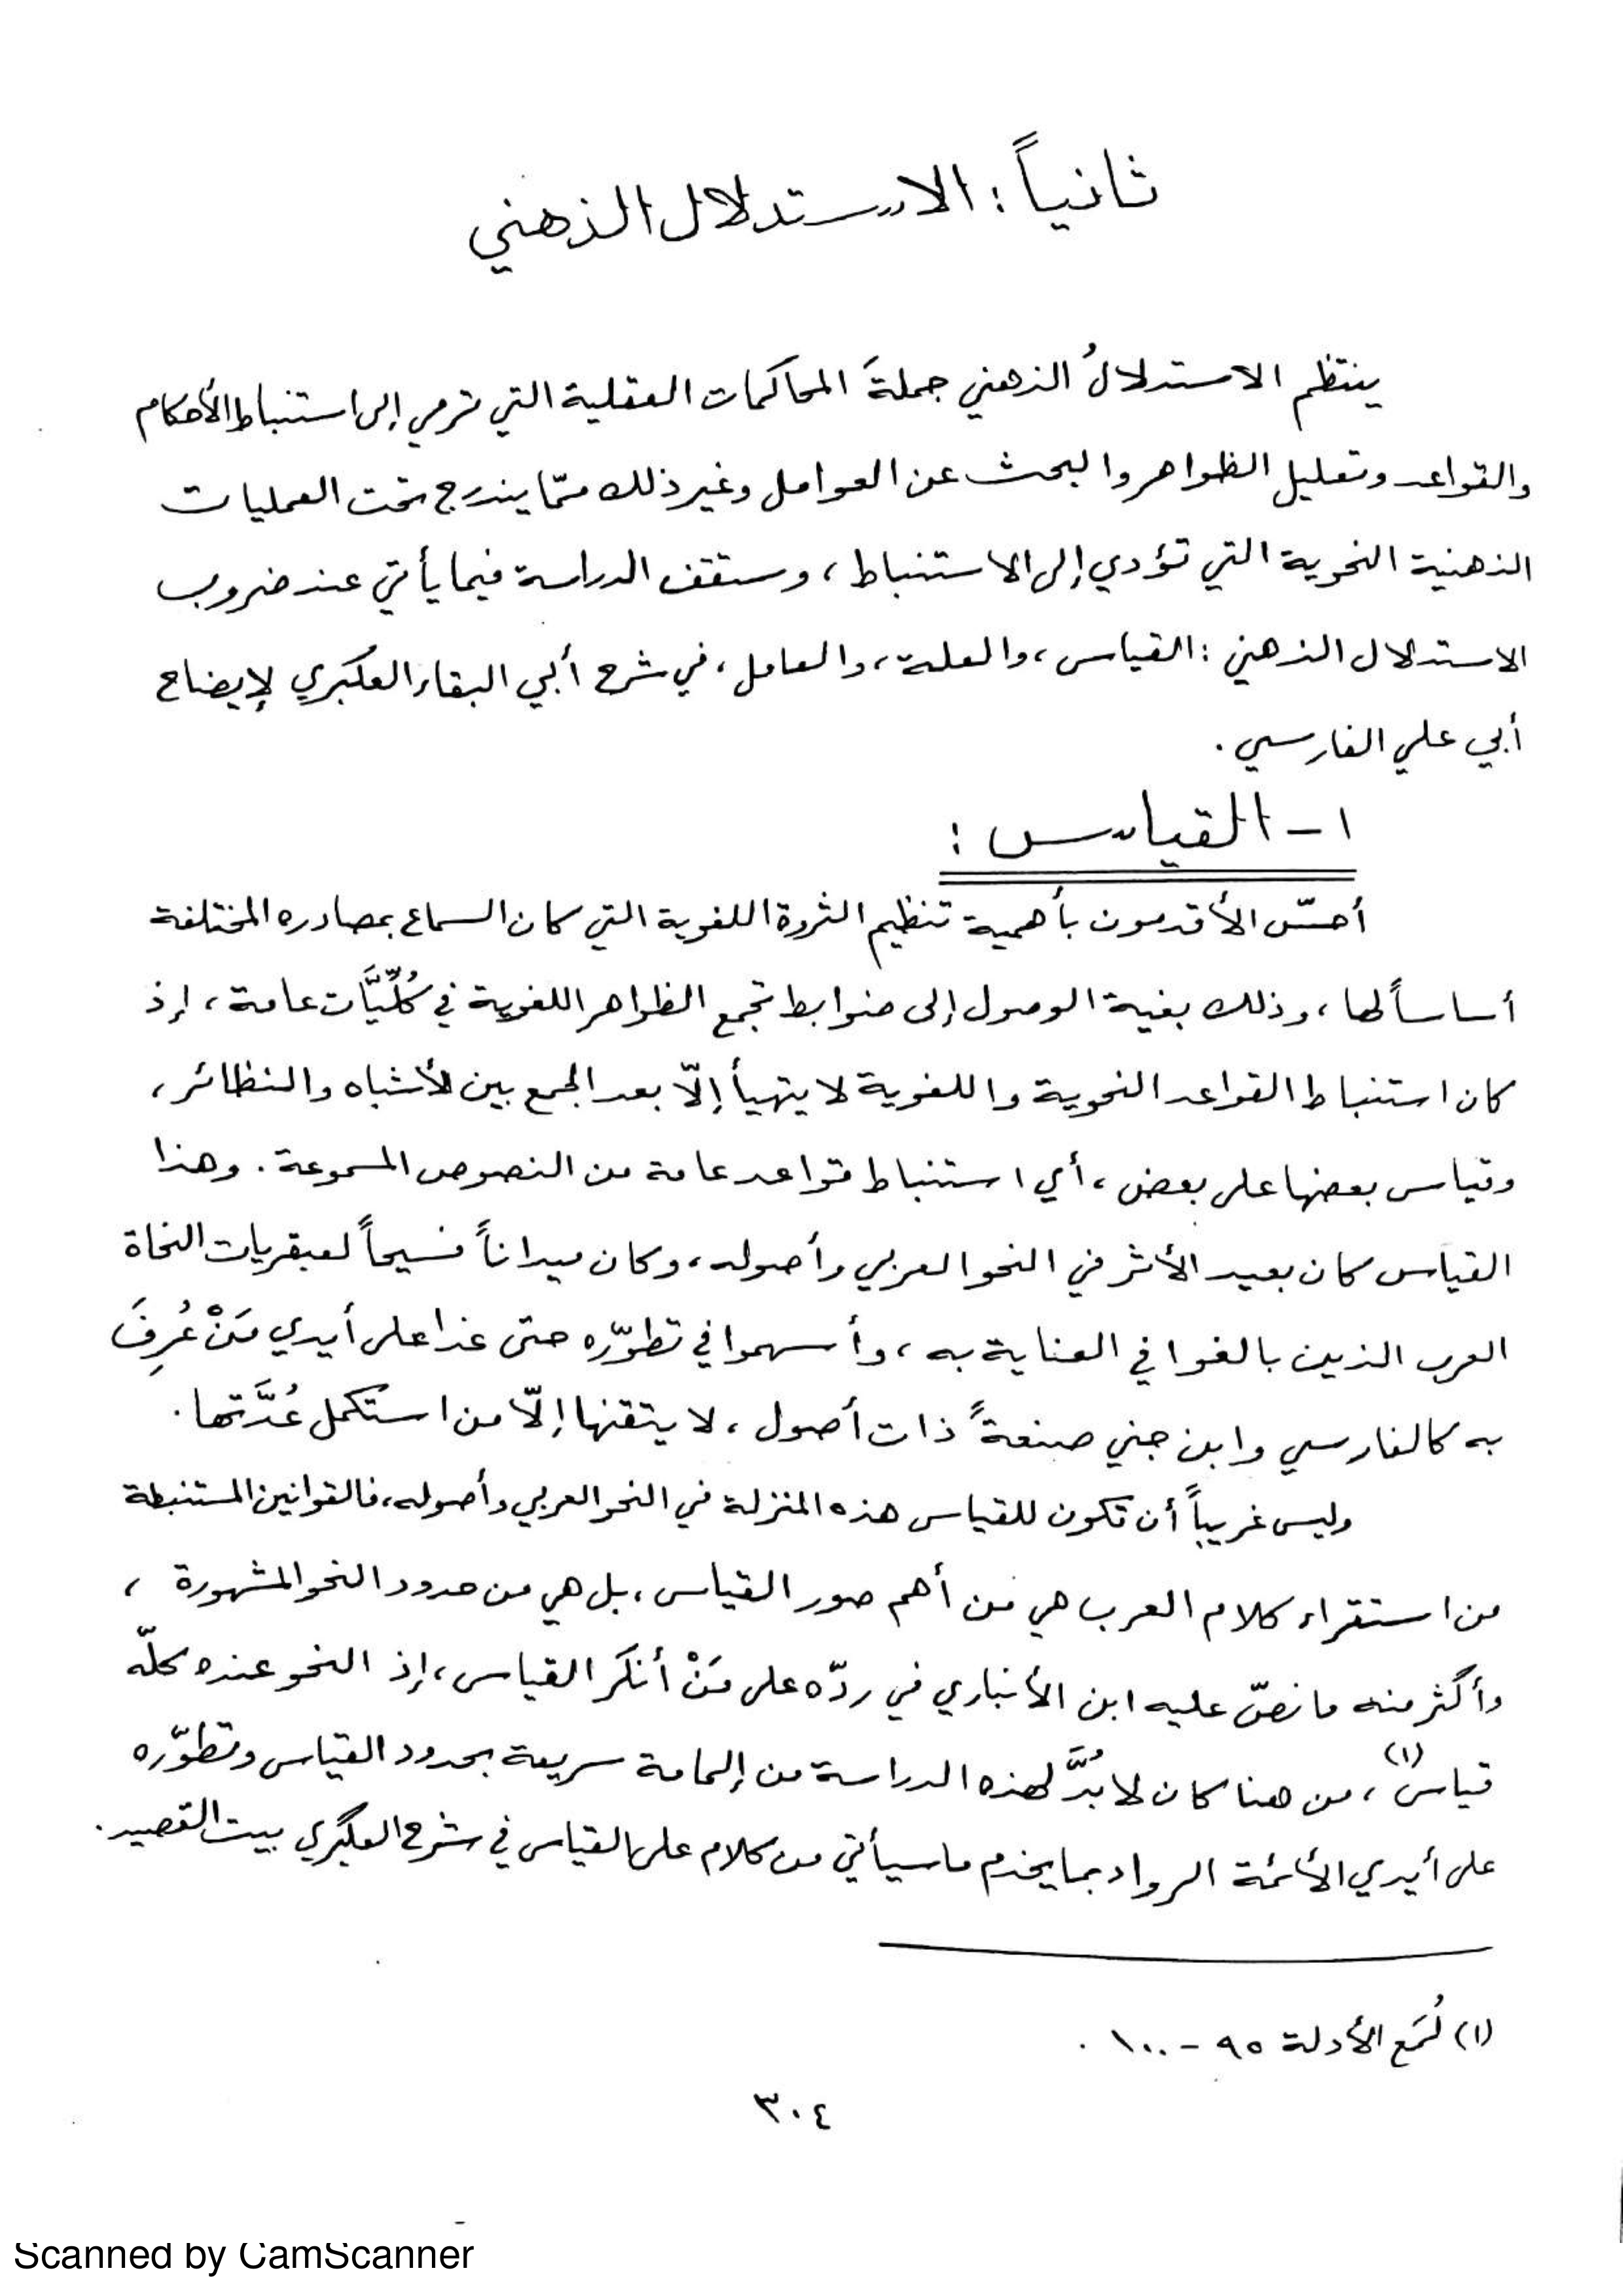 ثانياً : الاستدلال الذهني
ينتظم الاستدلالُ الذهني جملةَ المحاكمات العقلية التي ترمي إلى استنباط الأحكام
والقواعد وتعليل الظواهر والبحث عن العوامل وغير ذلك ممّا يندرج تحت العمليات
الذهنية النحوية التي تؤدي إلى الاستنباط ، وستقف الدراسة فيما يأتي عند ضروب
الاستدلال الذهني : القياس ، والعلة ، والعامل ، في شرح أبي البقاء العكبري لإيضاح
أبي علي الفارسي .
١ - القياس :
أحسّ الأقدمون بأهمية تنظيم الثروة اللغوية التي كان السماع بمصادره المختلفة
أساساً لها ، وذلك بغية الوصول إلى ضوابط تجمع الظواهر اللغوية في كُلِّيَّات عامة ، إذ
كان استنباط القواعد النحوية واللغوية لا يتهيأ إلّا بعد الجمع بين الأشباه والنظائر ،
وقياس بعضها على بعض ، أي استنباط قواعد عامة من النصوص المسموعة . وهذا
القياس كان بعيد الأثر في النحو العربي وأصوله ، وكان ميداناً فسيحاً لعبقريات النحاة
العرب الذين بالغوا في العناية به ، وأسهموا في تطوّره حتى غدا على أيدي مَنْ عُرِفَ
به كالفارسي وابن جني صنعةً ذات أصول ، لا يتقنها إلّا من استكمل عُدَّتها .
وليس غريباً أن تكون للقياس هذه المنزلة في النحو العربي وأصوله ، فالقوانين المستنبطة
من استقراء كلام العرب هي من أهم صور القياس ، بل هي من حدود النحو المشهورة ،
وأكثر منه ما نصّ عليه ابن الأنباري في ردّه على مَنْ أنكر القياس ، إذ النحو عنده كلّه
قياس (١) ، من هنا كان لا بُدَّ لهذه الدراسة من إلمامة سريعة بحدود القياس وتطوّره
على أيدي الأئمة الرواد بما يخدم ما سيأتي من كلام على القياس في شرح العكبري بيت القصيد .
(١) لُمَع الأدلة ٩٥ - ١٠٠ .
٣٠٤
Scanned by CamScanner